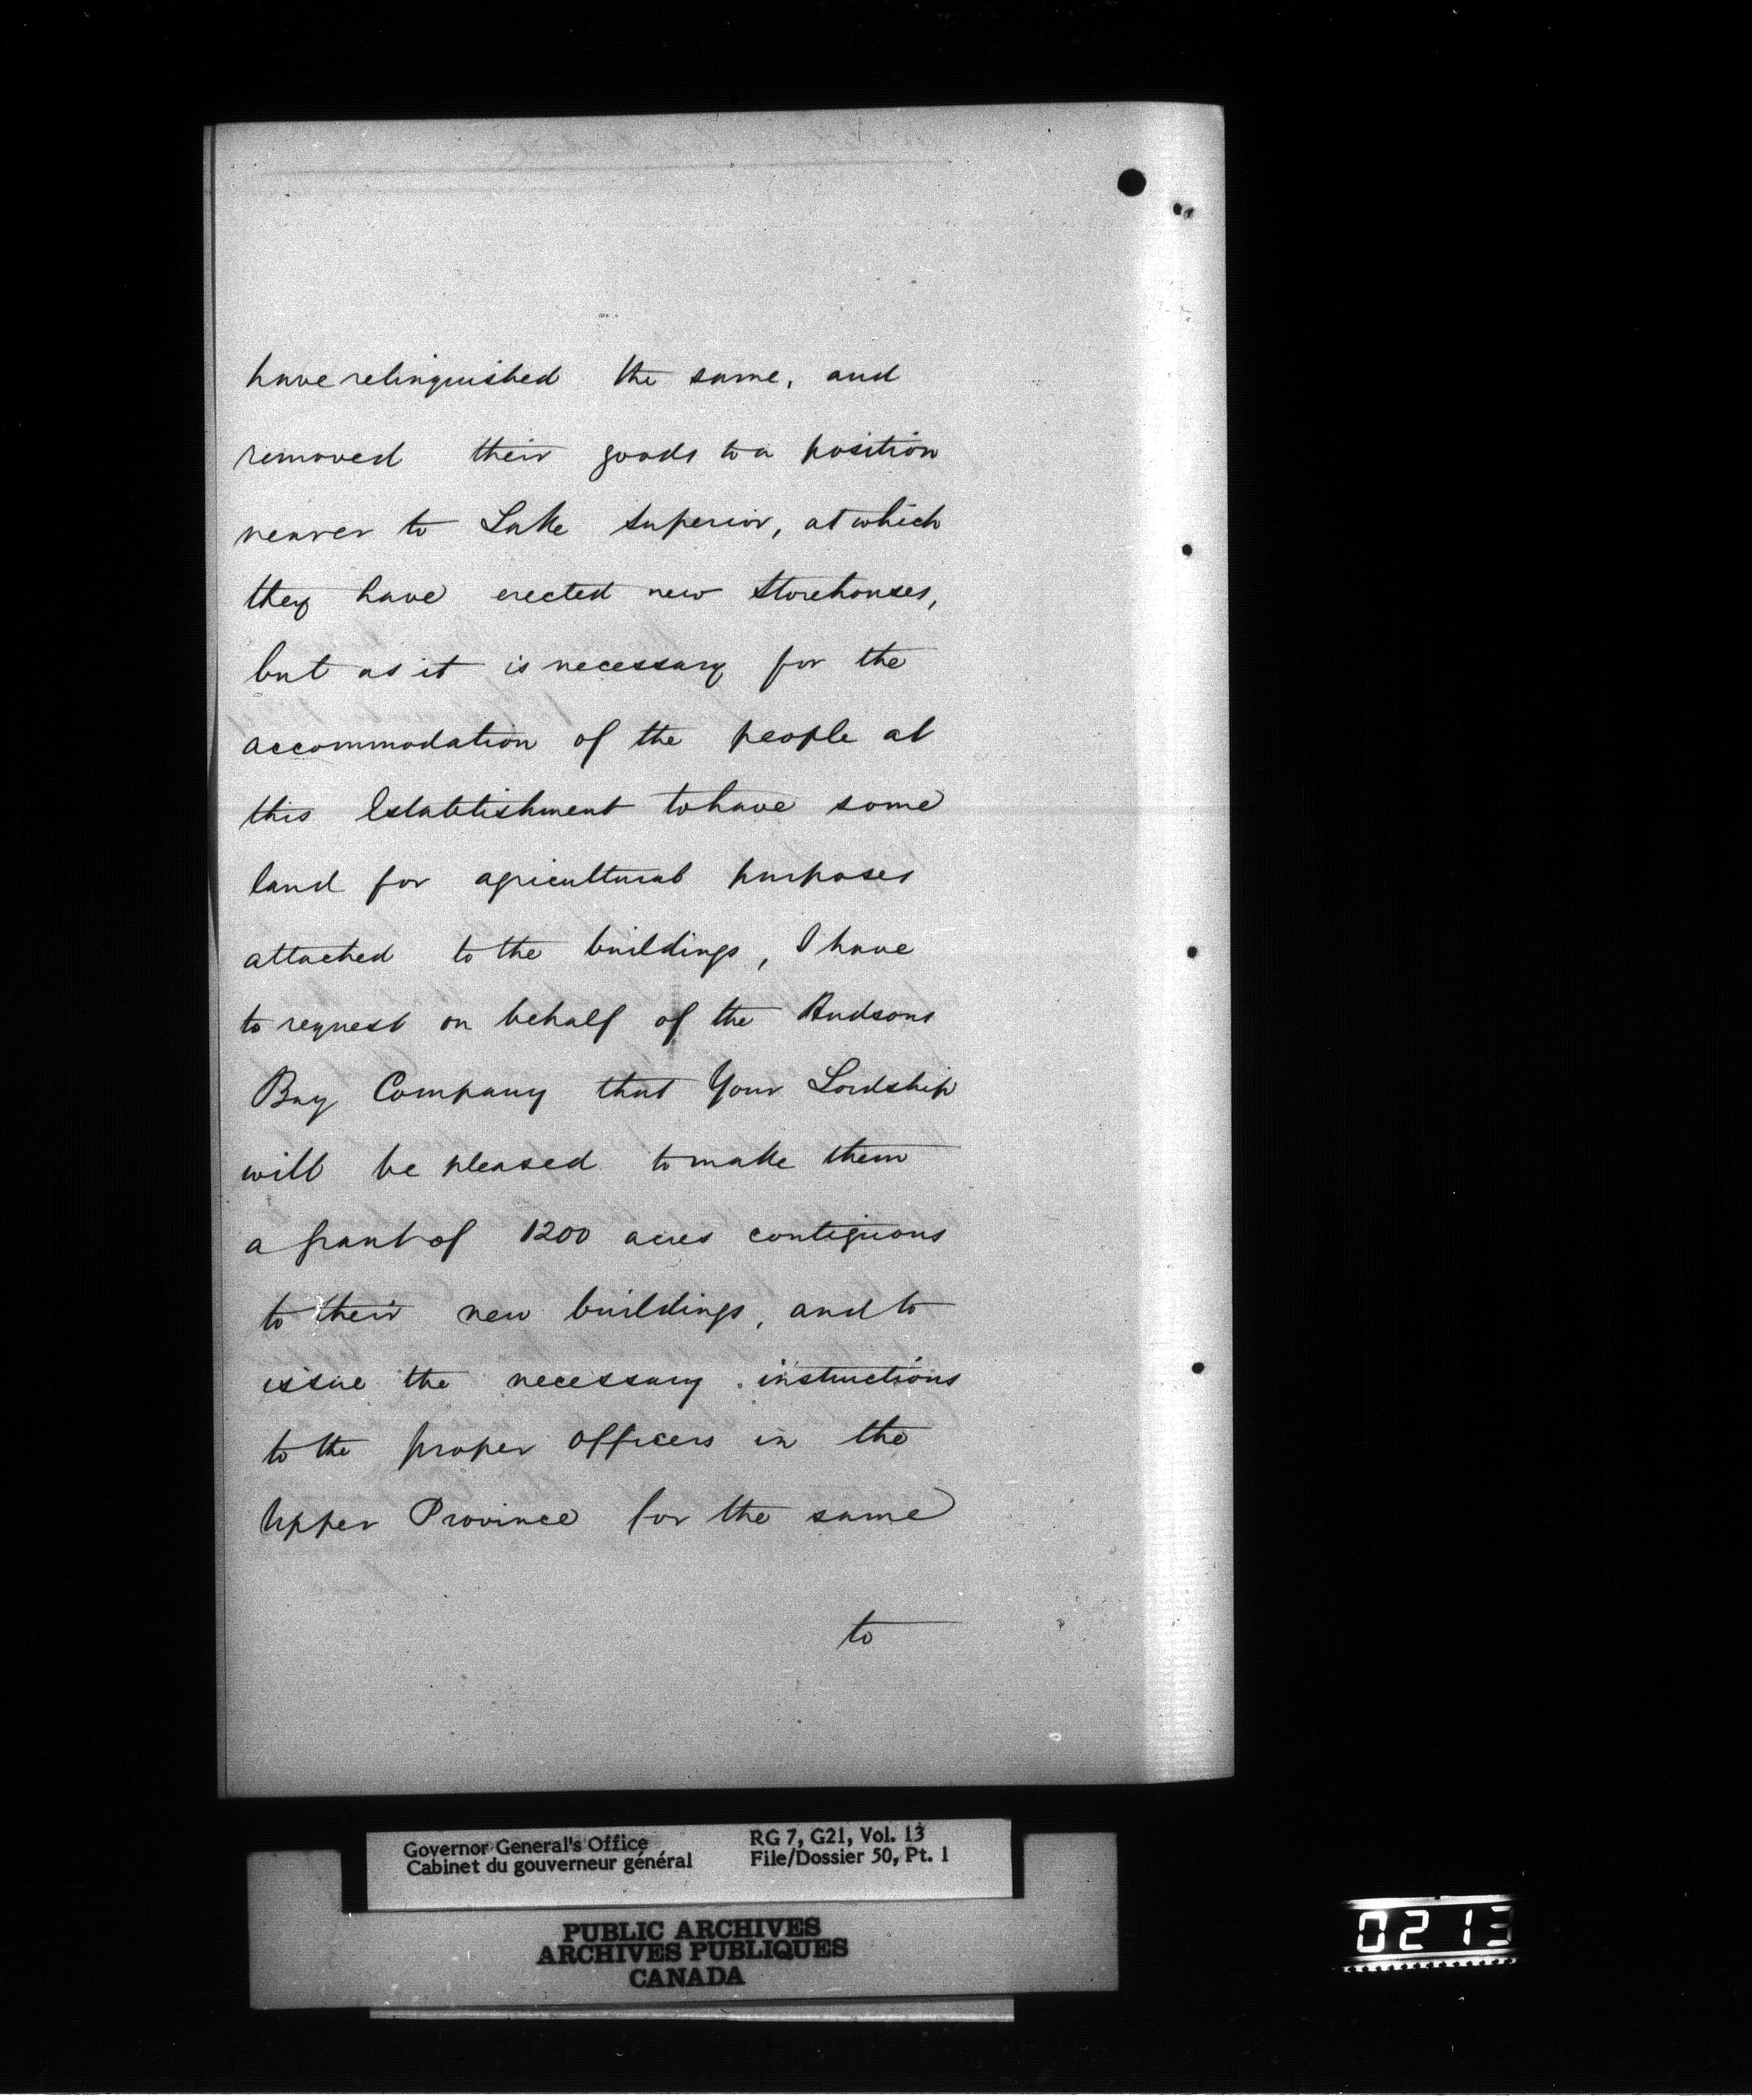 have relinquished the same, and
removed their goods to a position
nearer to Lake Superior, at which
they have erected new Storehouses,
but as it is necessary for the
accommodation of the people at
this Establishment to have some
land for agricultural purposes
attached to the buildings, I have
to request on behalf of the Hudsons
Bay Company that Your Lordship
will be pleased to make them
a grant of 1200 acres contiguous
to their new buildings, and to
issue the necessary instructions
to the proper officers in the
Upper Province for the same
to
Governor General's Office
Cabinet du gouverneur général
RG 7, G21, Vol. 13
File/Dossier 50, Pt. 1
PUBLIC ARCHIVES
ARCHIVES PUBLIQUES
CANADA
0213